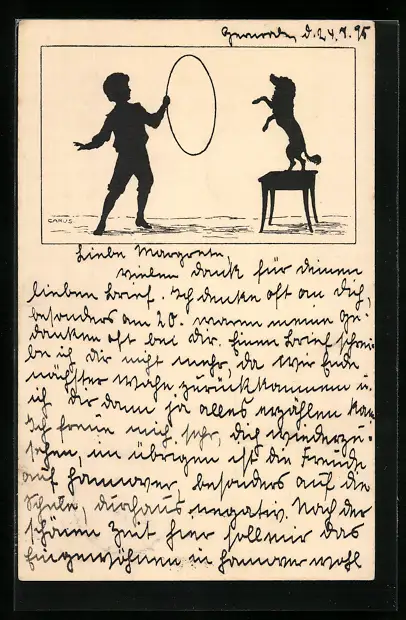 Gernrode, d. 24.7.95
CARUS.
Liebe Margrete,
vielen dank für deinen
lieben Brief. Ich denke oft an dich,
besonders am 20. waren meine Ge-
danken oft bei dir. Einen Brief schrei-
be ich dir nicht mehr, da wir Ende
nächster Wohe zurückkommen u.
ich dir dann ja alles erzählen kan
Ich freue mich sehr, dich wiederzu-
sehen, im übrigen ist die Freude
auf Hannover, besonders auf die
Schule, durchaus negativ. Nach der
schönen Zeit hier soll mir das
Eingewöhnen in Hannover wohl